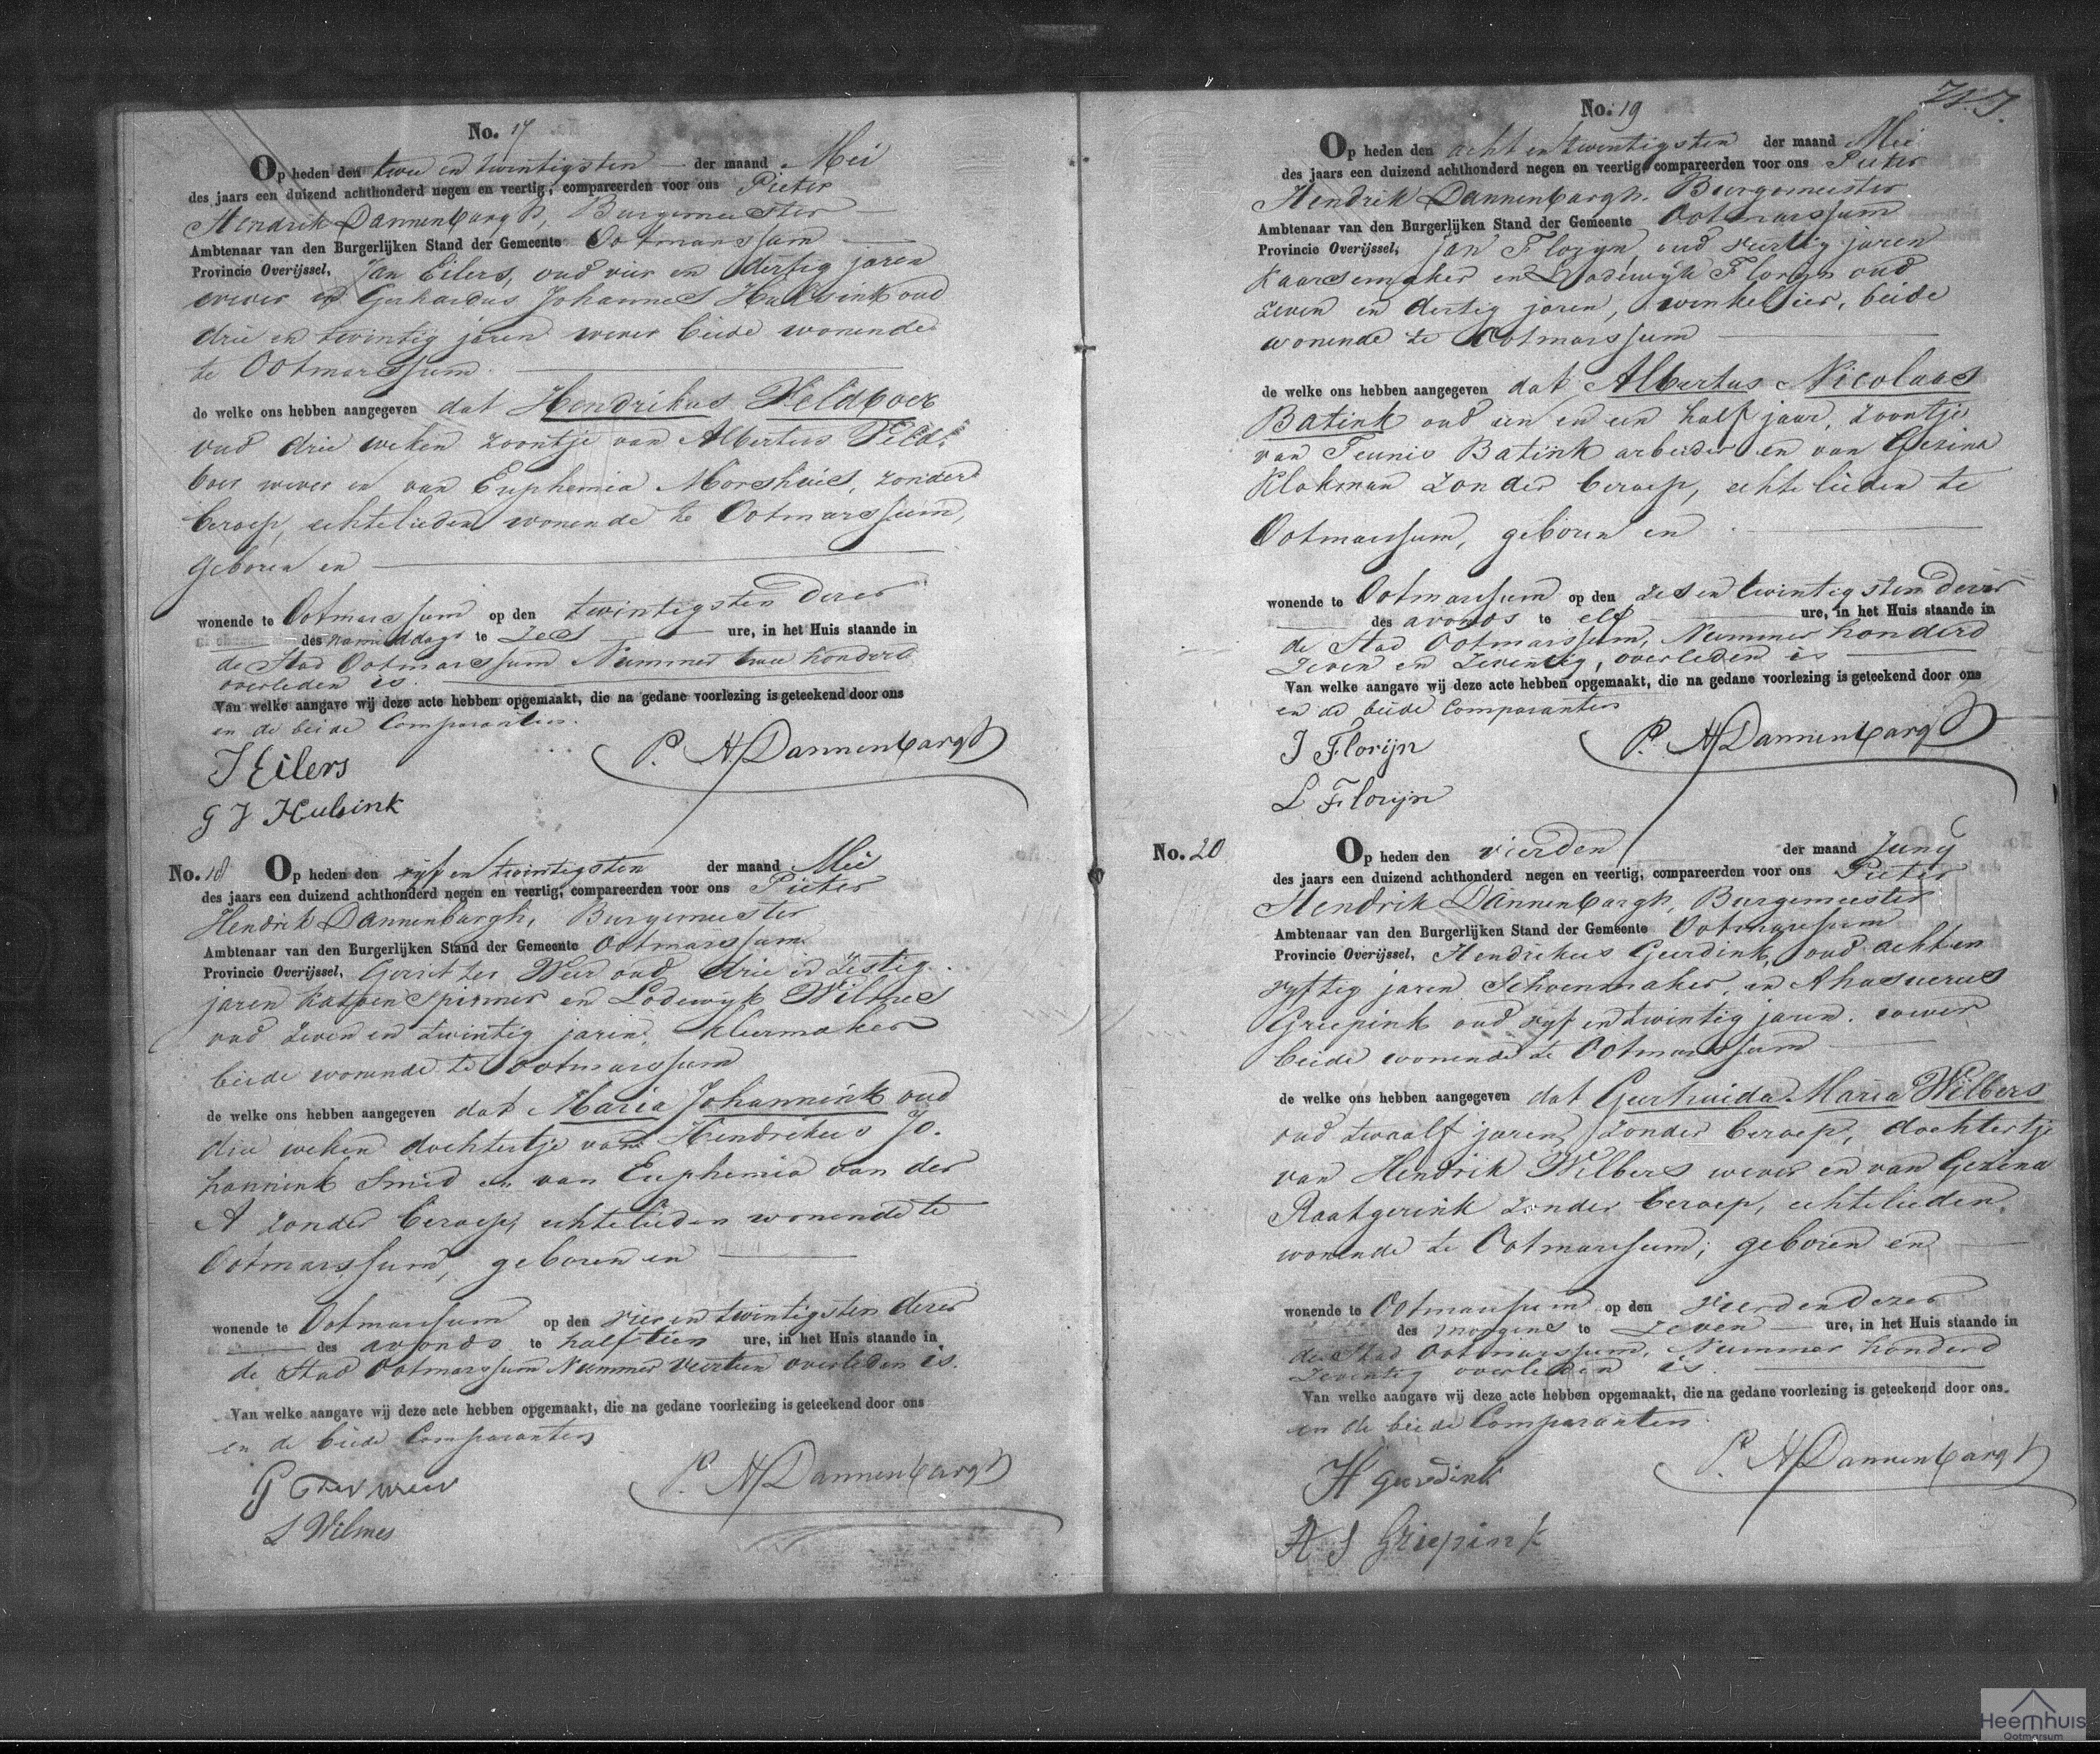 No. 17
Op heden den twee en twintigsten der maand Mei
des jaars een duizend achthonderd negen en veertig, compareerden voor ons Pieter
Hendrik Dannenbargh, Burgemeester
Ambtenaar van den Burgerlijken Stand der Gemeente Ootmarssum
Provincie Overijssel, Jan Eilers, oud vier en dertig jaren
wever en Gerhardus Johannes Hulsink oud
drie en twintig jaren wever beide wonende
te Ootmarssum
de welke ons hebben aangegeven dat Hendrikus Veldboer
oud drie weken zoontje van Albertus Veld-
boer wever en van Euphemia Morshuis, zonder
beroep, echtelieden wonende te Ootmarssum,
geboren en
wonende te Ootmarssum op den twintigsten dezer
des namiddags te zes ure, in het Huis staande in
de Stad Ootmarssum Nummer twee honderd
overleden is.
Van welke aangave wij deze acte hebben opgemaakt, die na gedane voorlezing is geteekend door ons
en de beide Comparanten.
J Eilers
P. H Dannenbargh
G J Hulsink
No. 18 Op heden den vyf en twintigsten der maand Mei
des jaars een duizend achthonderd negen en veertig, compareerden voor ons Pieter
Hendrik Dannenbargh, Burgemeester
Ambtenaar van den Burgerlijken Stand der Gemeente Ootmarssum
Provincie Overijssel, Gerrit ter Weer oud drie en zestig
jaren katoenspinner en Lodewyk Wilmes
oud zeven en twintig jaren, kleermaker
beide wonende te Ootmarssum
de welke ons hebben aangegeven dat Maria Johannink oud
drie weken dochtertje van Hendrikus Jo-
hannink Smid en van Euphemia van der
A zonder beroep, echtelieden wonende te
Ootmarssum, geboren en
wonende te Ootmarssum op den vier en twintigsten dezer
des avonds te half tien ure, in het Huis staande in
de Stad Ootmarssum Nummer veertien overleden is.
Van welke aangave wij deze acte hebben opgemaakt, die na gedane voorlezing is geteekend door ons
en de beide Comparanten
G ter weer
P. H Dannenbargh
L Wilmes
No. 19
Op heden den acht en twintigsten der maand Mei
des jaars een duizend achthonderd negen en veertig, compareerden voor ons Pieter
Hendrik Dannenbargh, Burgemeester
Ambtenaar van den Burgerlijken Stand der Gemeente Ootmarssum
Provincie Overijssel, Jan Floryn oud veertig jaren
Kaarsemaker en Lodewyk Floryn oud
zeven en dertig jaren, winkelier, beide
wonende te Ootmarssum
de welke ons hebben aangegeven dat Albertus Nicolaas
Batink oud een en een half jaar, zoontje
van Teunis Batink arbeider en van Gezina
Klokman zonder beroep, echtelieden te
Ootmarssum, geboren en
wonende te Ootmarssum op den zes en twintigsten dezer
des avonds te elf ure, in het Huis staande in
de Stad Ootmarssum, Nummer honderd
zeven en zeventig, overleden is
Van welke aangave wij deze acte hebben opgemaakt, die na gedane voorlezing is geteekend door ons
en de beide Comparanten
J Florijn
P. H Dannenbargh
L Florijn
No. 20 Op heden den vierden der maand Juny
des jaars een duizend achthonderd negen en veertig, compareerden voor ons Pieter
Hendrik Dannenbargh, Burgemeester
Ambtenaar van den Burgerlijken Stand der Gemeente Ootmarssum
Provincie Overijssel, Hendrikus Geerdink, oud acht en
vyftig jaren Schoenmaker, en Ahasuerus
Griepink oud vyf en twintig jaren. wever
beide wonende te Ootmarssum
de welke ons hebben aangegeven dat Geertruida Maria Wilbers
oud twaalf jaren, zonder beroep, dochtertje
van Hendrik Wilbers wever en van Gezena
Raatgerink zonder beroep, echtelieden,
wonende te Ootmarssum, geboren en
wonende te Ootmarssum op den vierden dezer
des morgens te zeven ure, in het Huis staande in
de Stad Ootmarssum, Nummer honderd
zeventig overleden is
Van welke aangave wij deze acte hebben opgemaakt, die na gedane voorlezing is geteekend door ons.
en de beide Comparanten.
H Geerdink
P. H Dannenbargh
A S Griepink
Heemhuis
Ootmarsum